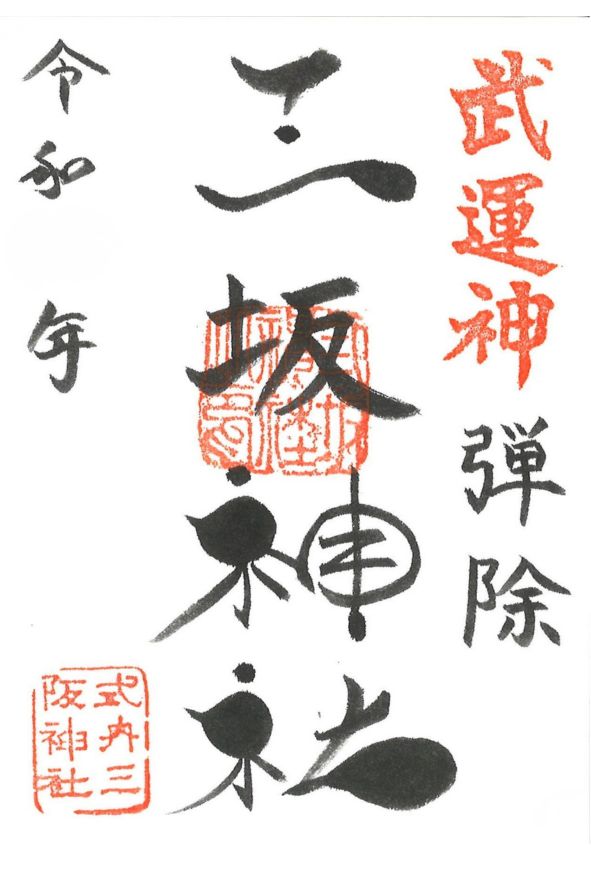 武運神
弾除
三坂神社
令和 年
式内三
阪神社